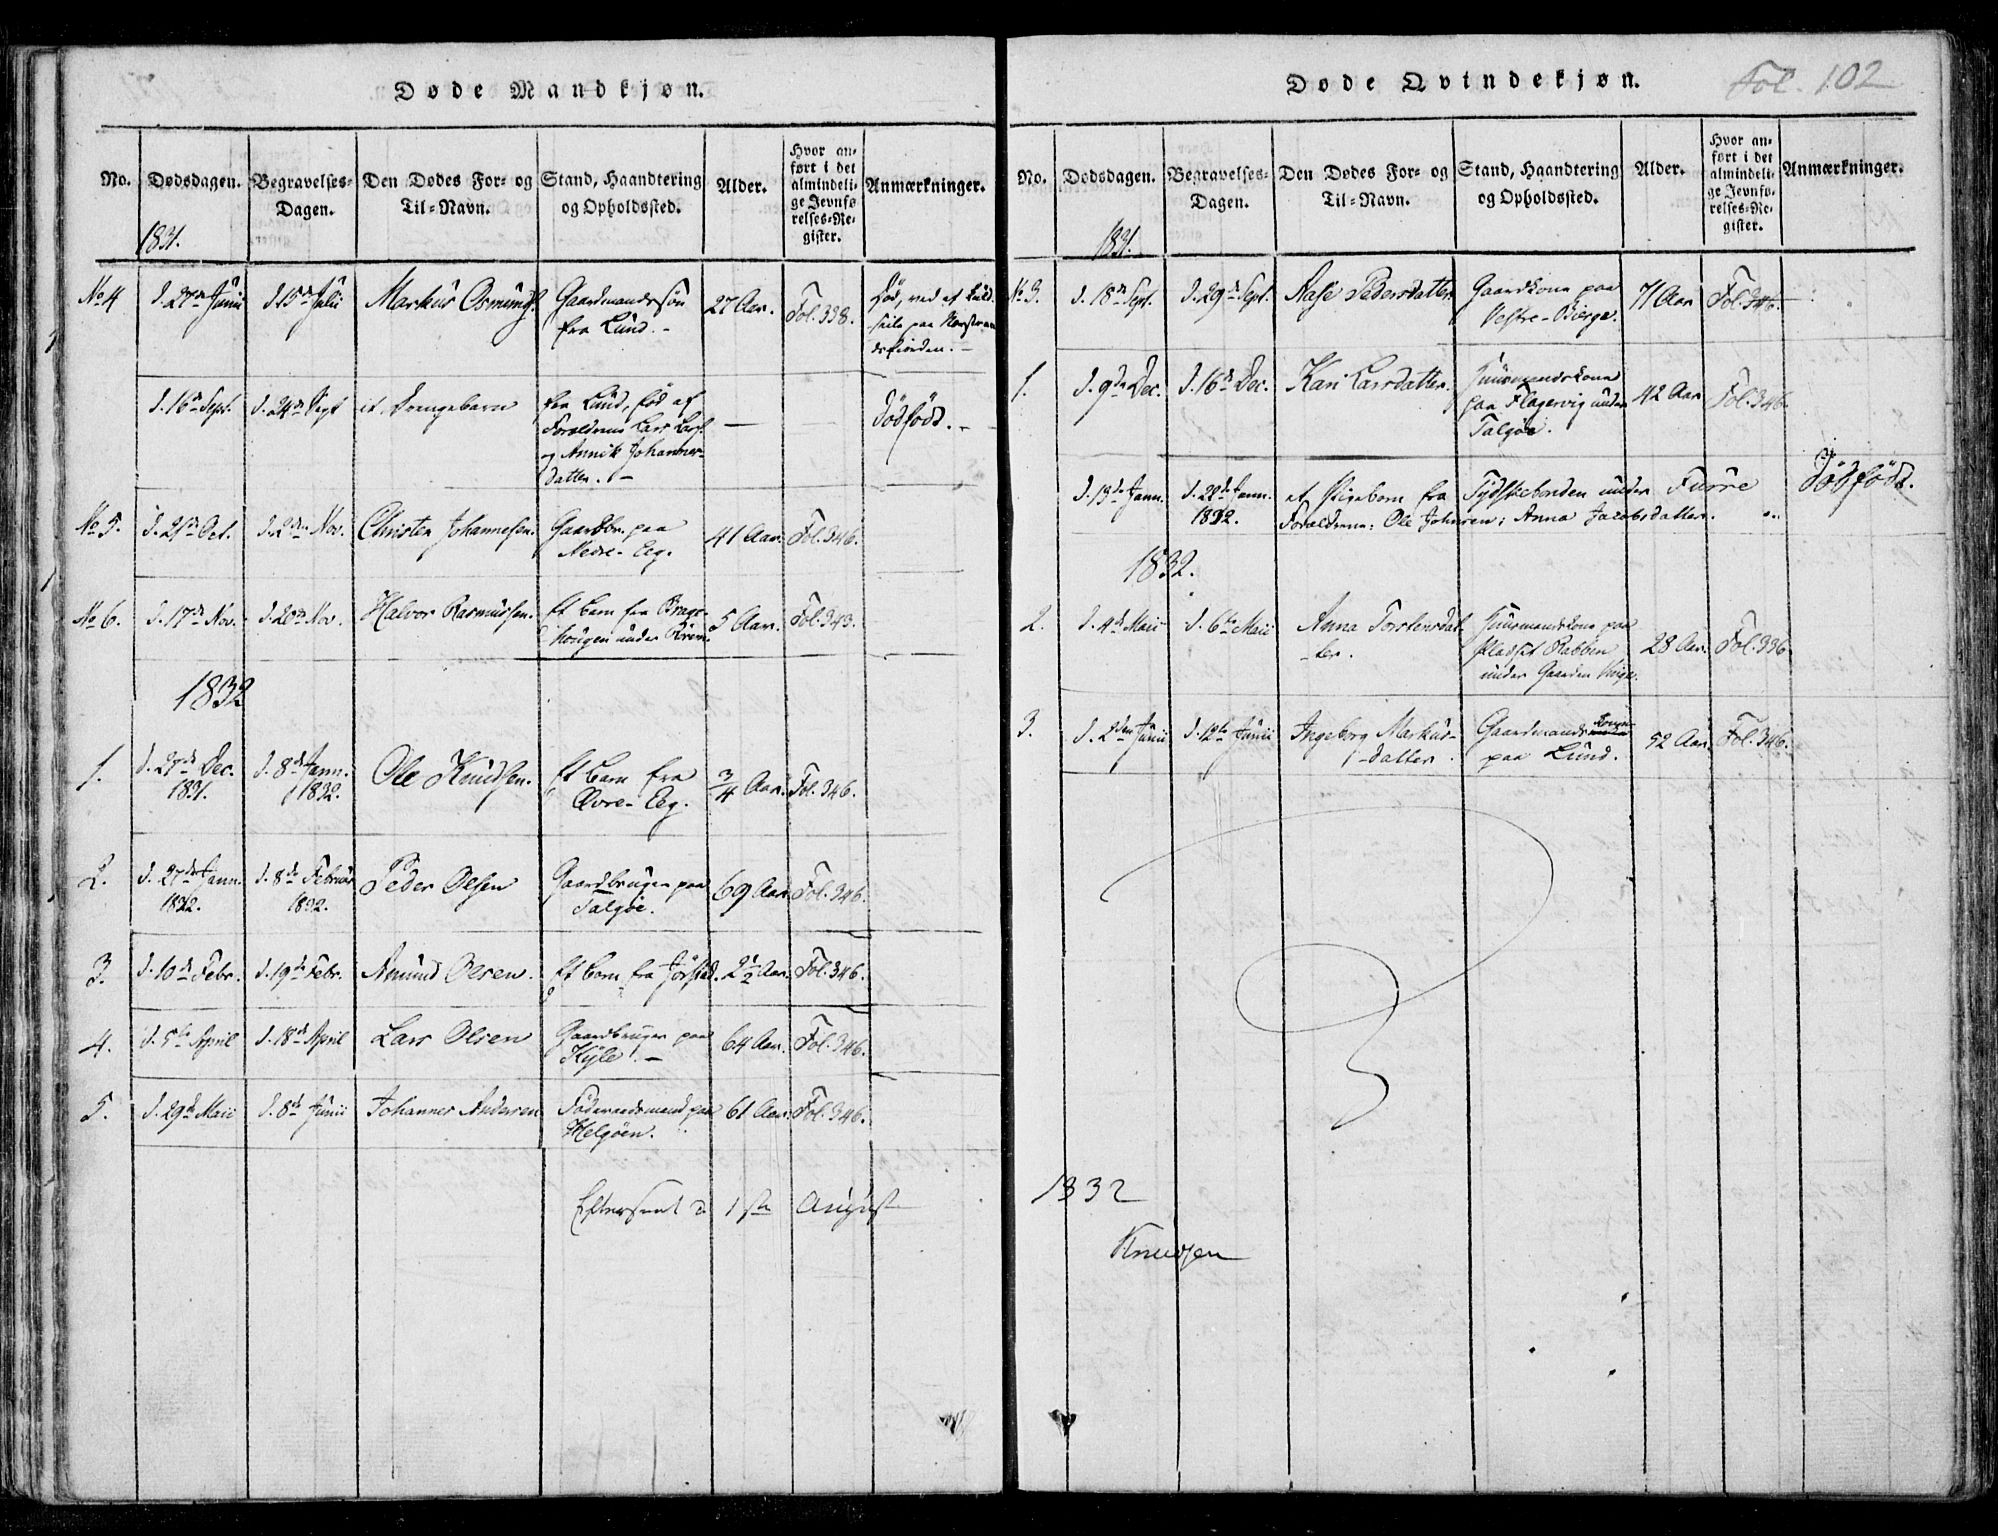 Døde Mandkjøn.
No. Dødsdagen. Begravelses-Dagen. Den Dødes For- og Til-Navn. Stand, Haandtering og Opholdssted. Alder. Hvor anført i det almindelige Jevnførelses-Register. Anmærkninger.
1831.
No 4 d. 27de Junii d. 15de Julii Markus Osmunds. Gaardmandssøn fra Lund. 27 Aar. Fol. 338. Død, ved et
paa
d. 16de Sept. d. 24de Sept. et Drengebarn fra Lund, fød af
Forældrene Lars Lars.
og Annik Johannes-
datter. — Dødfødt. —
No 5. d. 21de Oct. d. 2den Nov. Christen Johannesen. Gaardbr. paa
Nedre-Eeg. 41 Aar. Fol. 346.
No 6. d. 17de Nov. d. 20de Nov. Halvor Rasmussen. Et Barn fra
under 5 Aar. Fol. 343.
1832
1. d. 27de Dec. 1831. d. 8de Jann. 1832. Ole Knudsen. Et Barn fra
Øvre-Eeg. 3/4 Aar. Fol. 346.
2. d. 27de Jann. 1832. d. 8de Februar 1832. Peder Olsen Gaardbruger paa
Talgøe. 69 Aar Fol. 346.
3. d. 10de Febr. d. 19de Febr. Amund Olsen. Et Barn fra Jørstad. 2 1/2 Aar. Fol. 346.
4. d. 5te April d. 18de April Lars Olsen Gaardbruger paa
Kyle. — 64 Aar. Fol. 346.
5. d. 29de Maii d. 8de Junii Johannes Andersen Føderaadsmand paa
Helgøen. 61 Aar. Fol. 346.
Efterseet d. 1ste August
Døde Qvindekjøn.
Fol. 102
No. Dødsdagen. Begravelses-Dagen. Den Dødes For- og Til-Navn. Stand, Haandtering og Opholdssted. Alder. Hvor anført i det almindelige Jevnførelses-Register. Anmærkninger.
1831.
No 3. d. 18de Sept. d. 29de Sept. Aase Pedersdatter Gaardkone paa
Vestre-Bierge. 71 Aar Fol. 346.
1. d. 9de Dec. d. 16de Dec. Kari Larsdatter. Huusmandskone
paa Flagervig under
Talgøe. 42 Aar Fol. 346.
d. 13de Jann. d. 22de Jann. 1832. et Pigebarn fra Tydskebonden under Furre Dødfødt.
Forældrene: Ole Johnsen; Anna Jacobsdatter.
1832.
2. d. 4de Maii d. 6te Maii Anna Torstensdat-
ter. Huusmandskone paa
Pladset Rabben
under Gaarden 28 Aar. Fol. 336
3. d. 2den Junii d. 12te Junii Ingeborg Markus-
datter. Gaardmands Kone
paa Lund. 52 Aar. Fol. 346.
1832
Knudsen